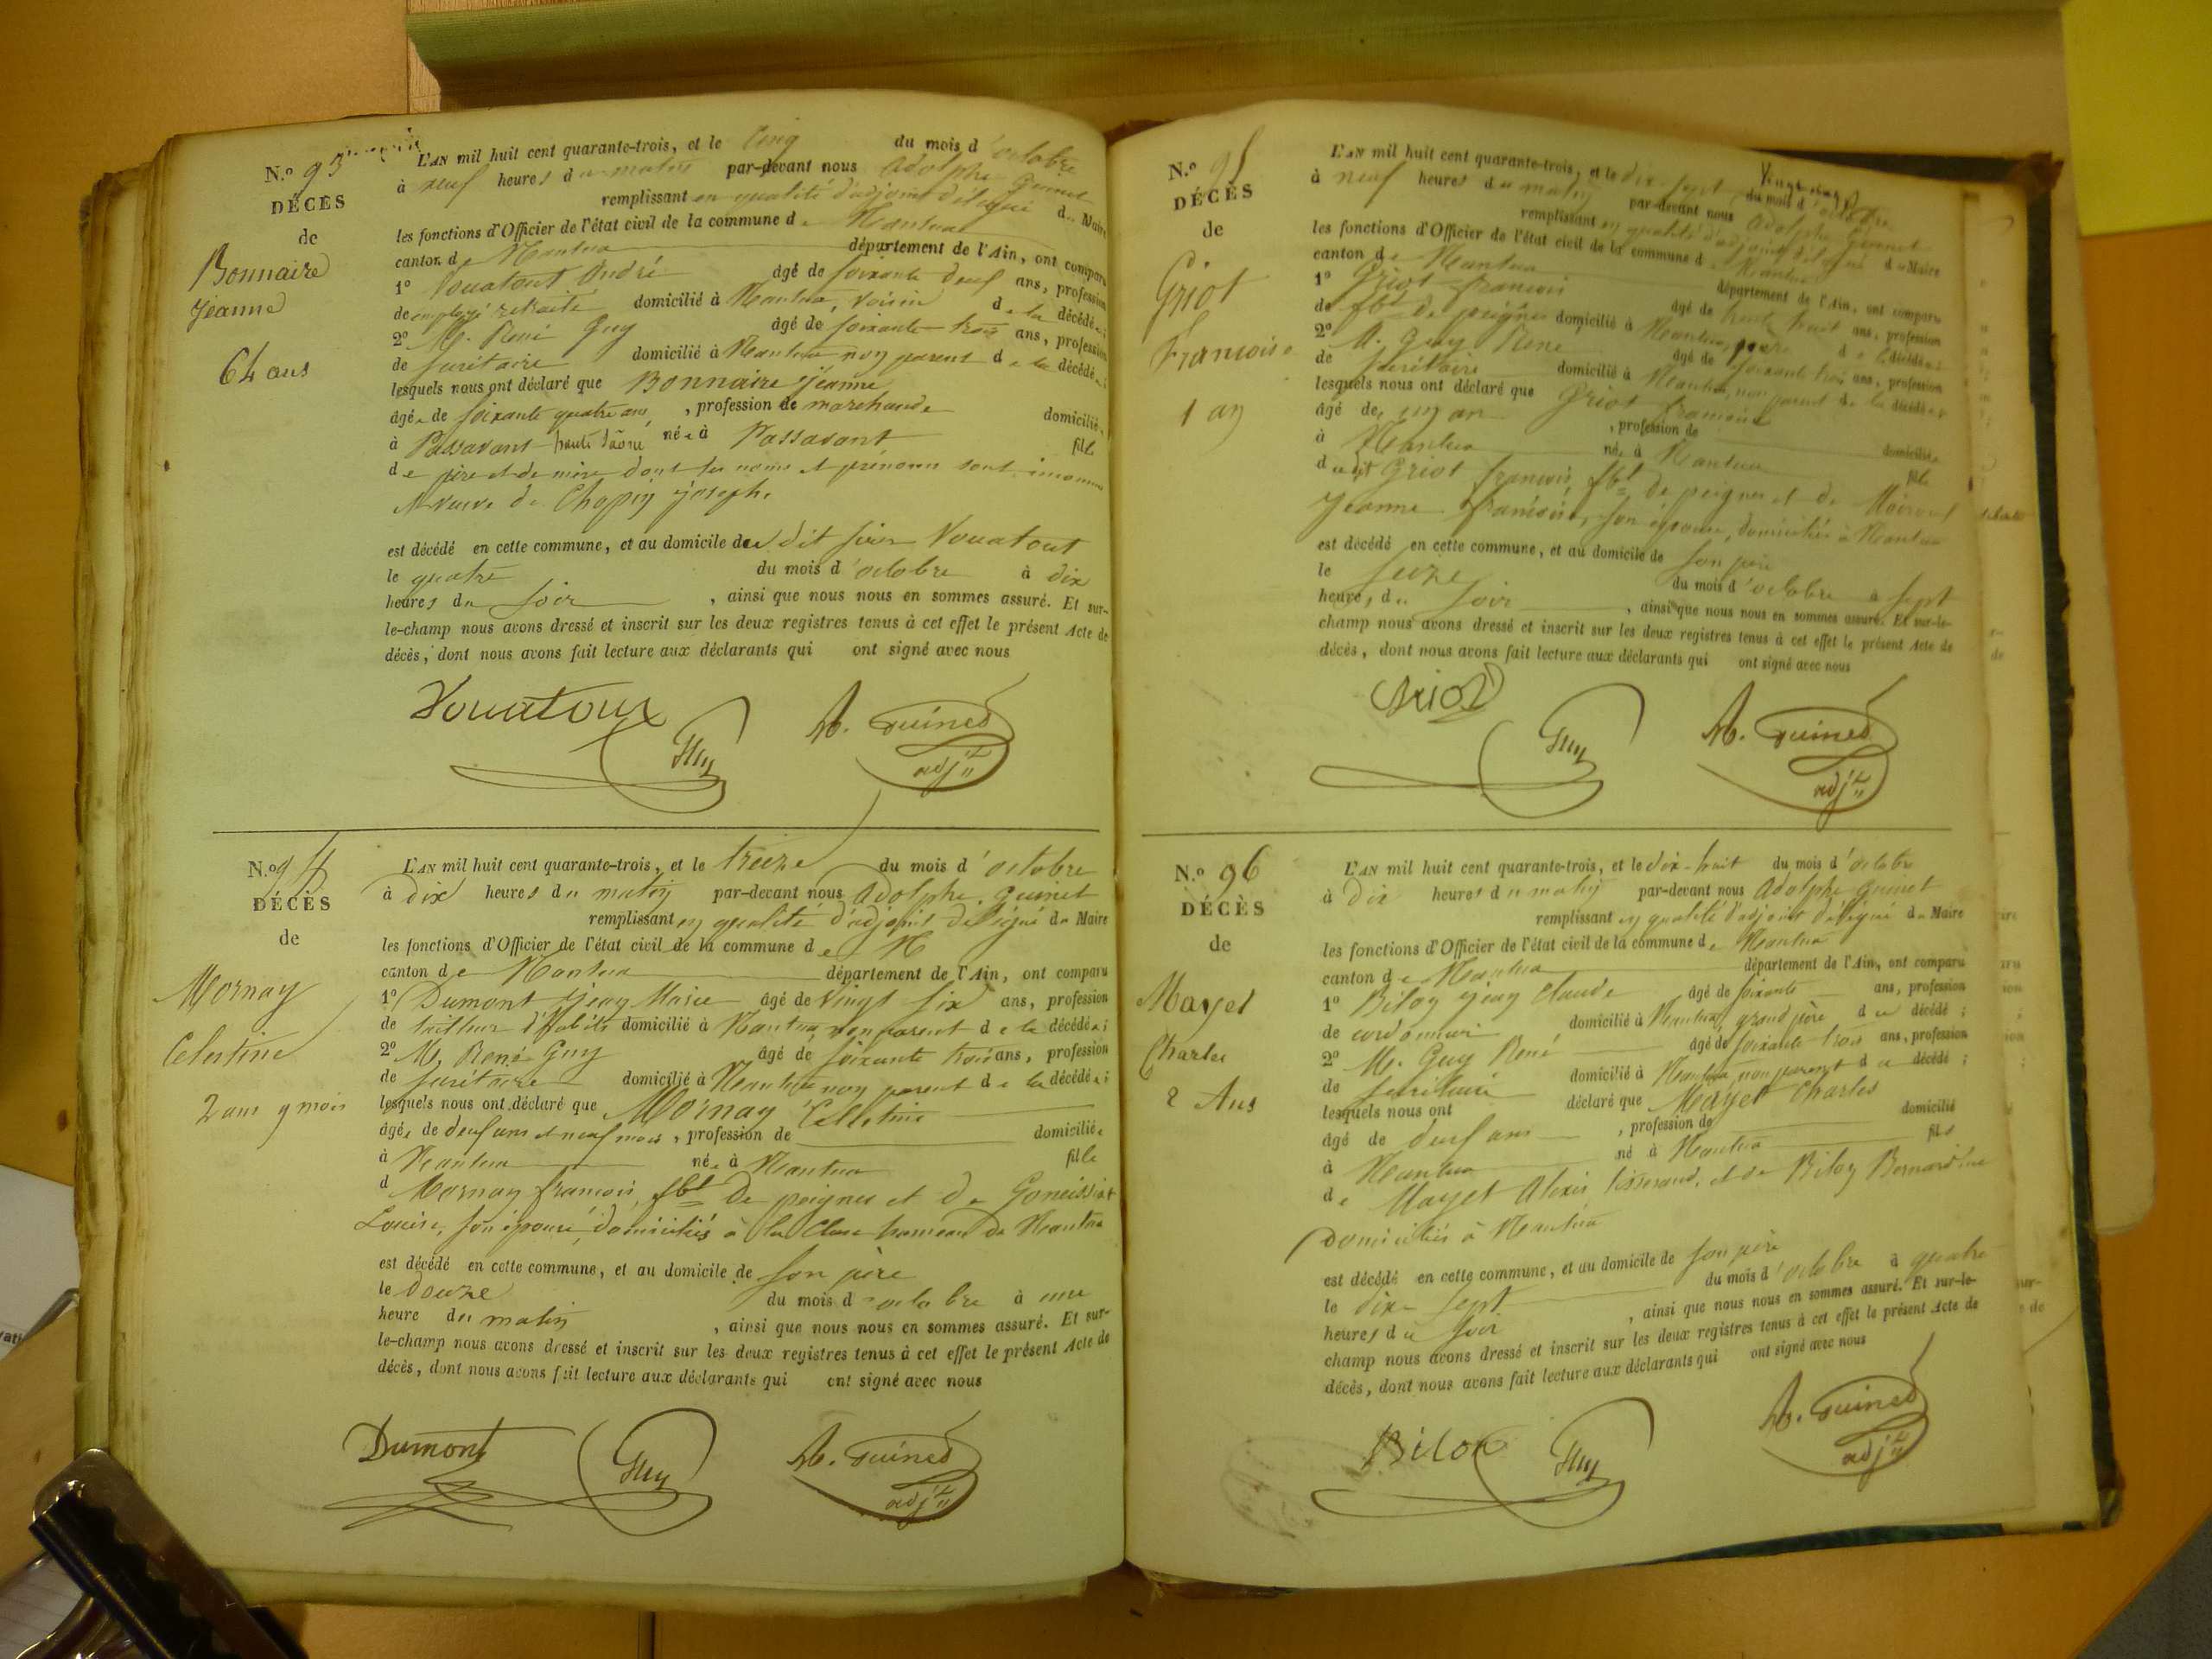 N.o 93
DÉCÈS
de
Bonnaire
Jeanne
64 ans
L'AN mil huit cent quarante-trois, et le cinq du mois d'octobre
à neuf heures du matin par-devant nous Adolphe Guinet
remplissant en qualité d'adjoint délégué du Maire
les fonctions d'Officier de l'état civil de la commune de Nantua
canton de Nantua département de l'Ain, ont comparu
1o Vouatout André âgé de soixante deux ans, profession
de employé retraité domicilié à Nantua, voisin de la décédée;
2o M. René Guy âgé de soixante trois ans, profession
de secrétaire domicilié à Nantua non parent de la décédée;
lesquels nous ont déclaré que Bonnaire Jeanne
âgée de soixante quatre ans, profession de marchande domiciliée
à Passavant haute Saône née à Passavant fille
de père et de mère dont les noms et prénoms sont inconnus
veuve de Chopin Joseph
est décédé en cette commune, et au domicile du dit sieur Vouatout
le quatre du mois d'octobre à dix
heures du soir, ainsi que nous nous en sommes assuré. Et sur-
le-champ nous avons dressé et inscrit sur les deux registres tenus à cet effet le présent Acte de
décès, dont nous avons fait lecture aux déclarants qui ont signé avec nous
Vouatoux Guy A. Guinet
adjt
N.o 94
DÉCÈS
de
Mornay
Celestine
2 ans 9 mois
L'AN mil huit cent quarante-trois, et le treize du mois d'octobre
à dix heures du matin par-devant nous Adolphe Guinet
remplissant en qualité d'adjoint délégué du Maire
les fonctions d'Officier de l'état civil de la commune de N
canton de Nantua département de l'Ain, ont comparu
1o Dumont Jean Marie âgé de vingt six ans, profession
de tailleur d'habits domicilié à Nantua, non parent de la décédée;
2o M. René Guy âgé de soixante trois ans, profession
de secrétaire domicilié à Nantua non parent de la décédée;
lesquels nous ont déclaré que Mornay Celestine
âgée de deux ans et neuf mois, profession de domiciliée
à Nantua née à Nantua fille
d Mornay francois, fbt de peignes et de Goneissiat
Louise, son épouse, domiciliés à la Cluse hameau de Nantua
est décédé en cette commune, et au domicile de son père
le douze du mois d'octobre à une
heure du matin, ainsi que nous nous en sommes assuré. Et sur-
le-champ nous avons dressé et inscrit sur les deux registres tenus à cet effet le présent Acte de
décès, dont nous avons fait lecture aux déclarants qui ont signé avec nous
Dumont Guy A. Guinet
adjt
N.o 95
DÉCÈS
de
Griot
Francoise
1 an
L'AN mil huit cent quarante-trois, et le dix sept du mois d'octobre
à neuf heures du matin par-devant nous Adolphe Guinet
remplissant en qualité d'adjoint délégué du Maire
les fonctions d'Officier de l'état civil de la commune de Nantua
canton de Nantua département de l'Ain, ont comparu
1o Griot francois âgé de trente huit ans, profession
de fbt de peignes domicilié à Nantua, père de la décédée;
2o M. Guy René âgé de soixante trois ans, profession
de secrétaire domicilié à Nantua, non parent de la décédée;
lesquels nous ont déclaré que Griot francoise
âgé de un an, profession de domiciliée
à Nantua née à Nantua fille
du dit Griot francois, fbt de peignes et de
Jeanne francoise, son épouse, domiciliés à Nantua
est décédé en cette commune, et au domicile de son père
le seize du mois d'octobre à sept
heures du soir, ainsi que nous nous en sommes assuré. Et sur-le-
champ nous avons dressé et inscrit sur les deux registres tenus à cet effet le présent Acte de
décès, dont nous avons fait lecture aux déclarants qui ont signé avec nous
Griot Guy A. Guinet
adjt
N.o 96
DÉCÈS
de
Mayet
Charles
2 Ans
L'AN mil huit cent quarante-trois, et le dix-huit du mois d'octobre
à dix heures du matin par-devant nous Adolphe Guinet
remplissant en qualité d'adjoint délégué du Maire
les fonctions d'Officier de l'état civil de la commune de Nantua
canton de Nantua département de l'Ain, ont comparu
1o Biloy Jean Claude âgé de soixante ans, profession
de cordonnier domicilié à Nantua, grand père du décédé;
2o M. Guy René âgé de soixante trois ans, profession
de secrétaire domicilié à Nantua, non parent du décédé;
lesquels nous ont déclaré que Mayet Charles
âgé de deux ans, profession de domicilié
à Nantua né à Nantua fils
de Mayet Alexis, tisserand, et de Biloy Bernardine
domiciliés à Nantua
est décédé en cette commune, et au domicile de son père
le dix sept du mois d'octobre à quatre
heures du soir, ainsi que nous nous en sommes assuré. Et sur-le-
champ nous avons dressé et inscrit sur les deux registres tenus à cet effet le présent Acte de
décès, dont nous avons fait lecture aux déclarants qui ont signé avec nous
Guy A. Guinet
adjt